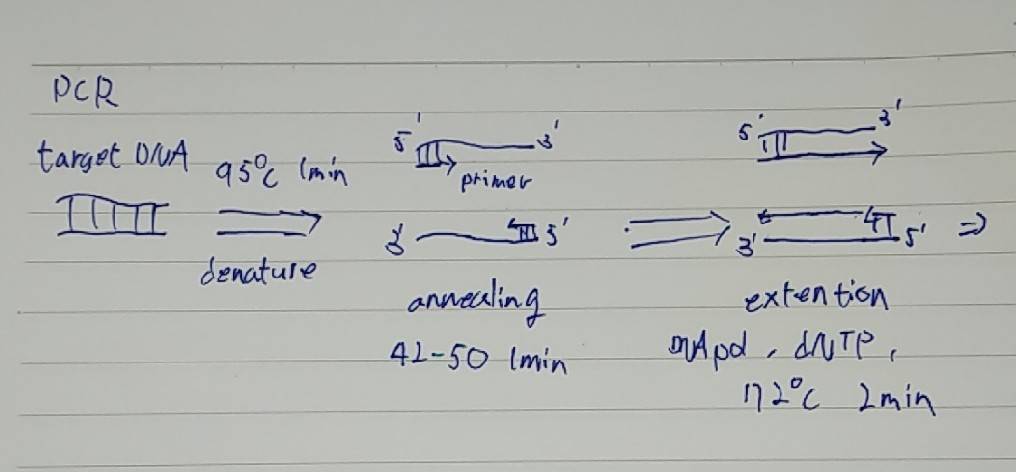 PCR
target DNA
95°C 1min
denature
5' 3'
primer
3' 5'
annealing
42-50 1min
5' 3'
3' 5'
extention
DNApol, dNTP,
72°C 2min